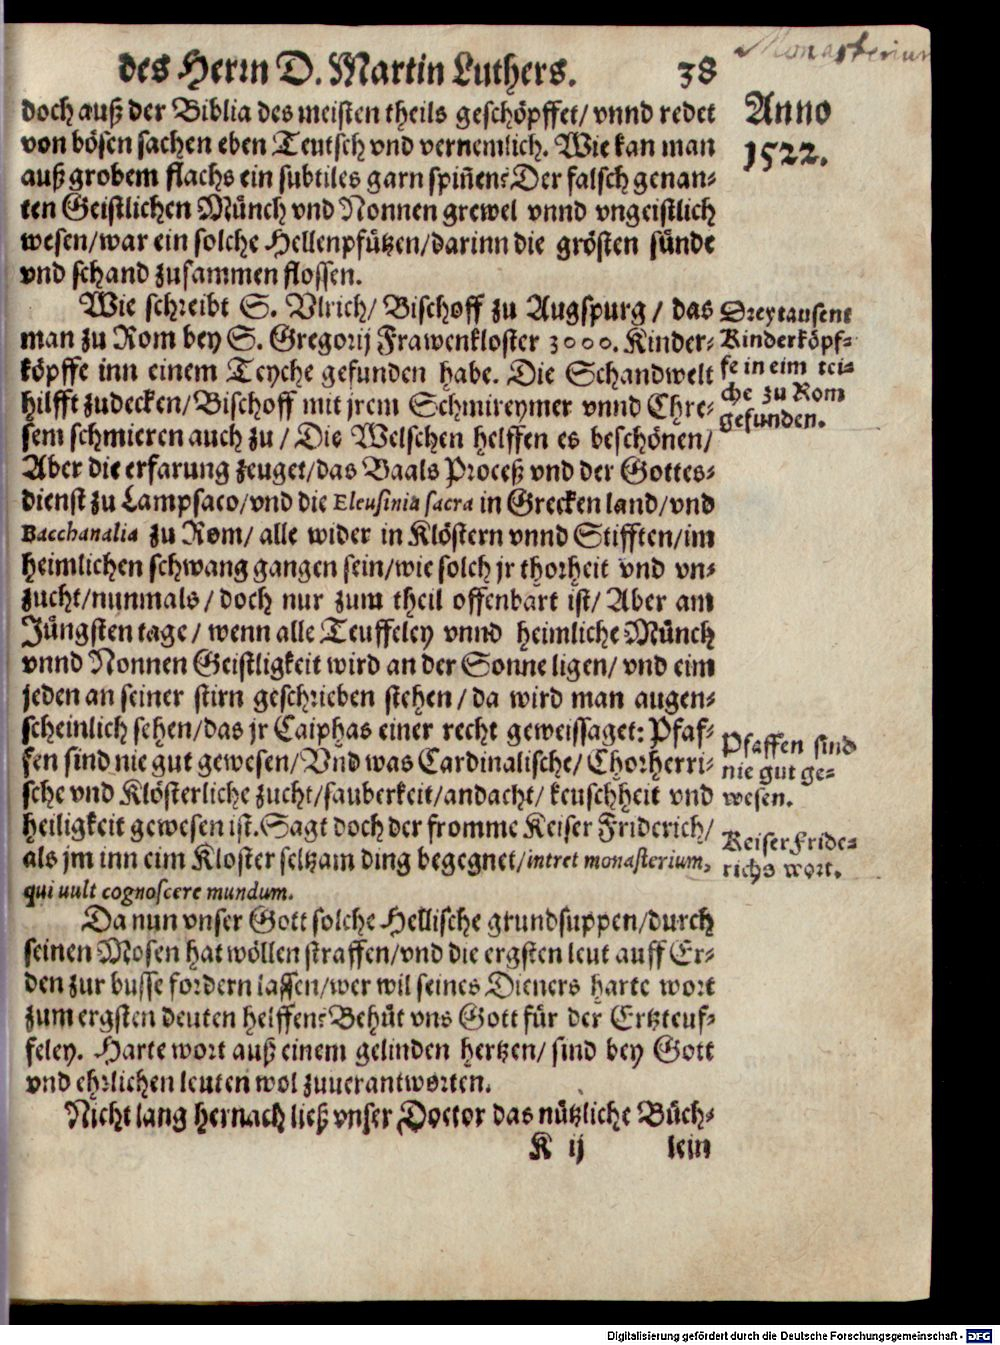 des Herrn D. Martin Luthers. 38
Monasterium
Anno
1522.
doch auß der Biblia des meisten theils geschöpffet/ vnnd redet
von bösen sachen eben Teutsch vnd vernemlich. Wie kan man
auß grobem flachs ein subtiles garn spiñen? Der falsch genan-
ten Geistlichen Münch vnd Nonnen grewel vnnd vngeistlich
wesen/war ein solche Hellenpfützen/darinn die grösten sünde
vnd schand zusammen flossen.
Wie schreibt S. Vlrich/ Bischoff zu Augspurg / das
man zu Rom bey S. Gregorij Frawenkloster 3000. Kinder-
köpffe inn einem Teyche gefunden habe. Die Schandwelt
hilfft zudecken/Bischoff mit jrem Schmireymer vnnd Chre-
sem schmieren auch zu / Die Welschen helffen es beschönen/
Aber die erfarung zeuget/das Baals Proceß vnd der Gottes-
dienst zu Lampsaco/vnd die Eleusinia sacra in Grecken land/vnd
Bacchanalia zu Rom/ alle wider in Klöstern vnnd Stifften/im
heimlichen schwang gangen sein/wie solch jr thorheit vnd vn-
zucht/nunmals / doch nur zum theil offenbart ist/ Aber am
Jüngsten tage / wenn alle Teuffeley vnnd heimliche Münch
vnnd Nonnen Geistligkeit wird an der Sonne ligen/ vnd eim
jeden an seiner stirn geschrieben stehen / da wird man augen-
scheinlich sehen/das jr Caiphas einer recht geweissaget: Pfaf-
fen sind nie gut gewesen/ Vnd was Cardinalische/ Chorherri-
sche vnd Klösterliche zucht/sauberkeit/andacht/ keuschheit vnd
heiligkeit gewesen ist. Sagt doch der fromme Keiser Friderich/
als jm inn eim Kloster seltzam ding begegnet/intret monasterium,
qui uult cognoscere mundum.
Da nun vnser Gott solche Hellische grundsuppen/durch
seinen Mosen hat wöllen straffen/vnd die ergsten leut auff Er-
den zur busse fordern lassen/wer wil seines Dieners harte wort
zum ergsten deuten helffen? Behüt vns Gott für der Ertzteuf-
feley. Harte wort auß einem gelinden hertzen/ sind bey Gott
vnd ehrlichen leuten wol zuuerantworten.
Nicht lang hernach ließ vnser Doctor das nützliche Büch-
K ij lein
Dreytausent
Kinderköpf-
fe in eim tei-
che zu Rom
gefunden.
Pfaffen sind
nie gut ge-
wesen.
Keiser Fride-
richs wort.
Digitalisierung gefördert durch die Deutsche Forschungsgemeinschaft - DFG